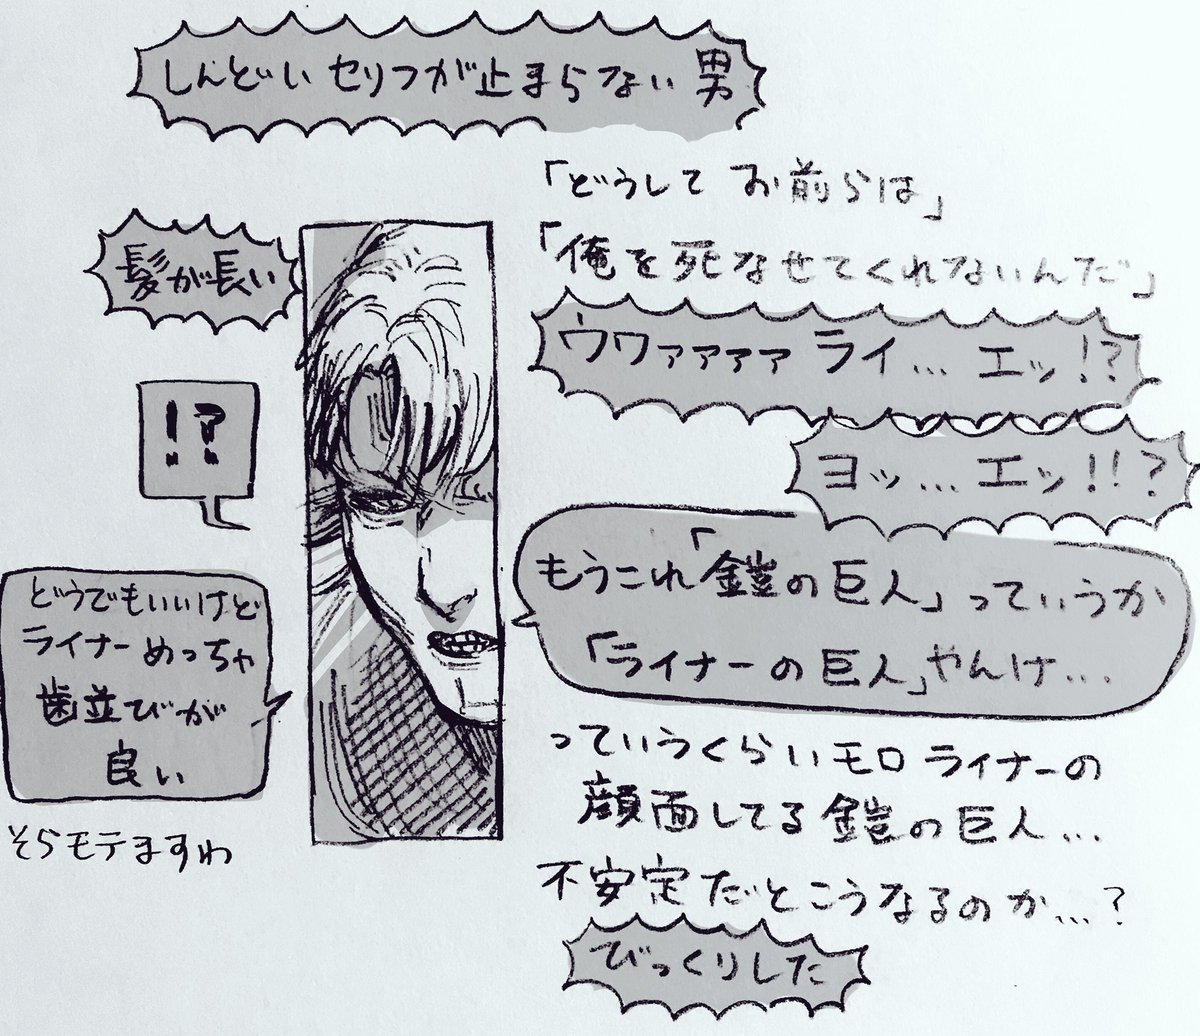 しんどいセリフが止まらない男
「どうしてお前らは」
「俺を死なせてくれないんだ」
髪が長い
ウワァァァァ ライ… エッ!?
ヨッ… エッ!!?
!?
もうこれ「鎧の巨人」っていうか
「ライナーの巨人」やんけ…
どうでもいいけど
ライナーめっちゃ
歯並びが
良い
そらモテますわ
っていうくらいモロ ライナーの
顔面してる鎧の巨人…
不安定だとこうなるのか…?
びっくりした